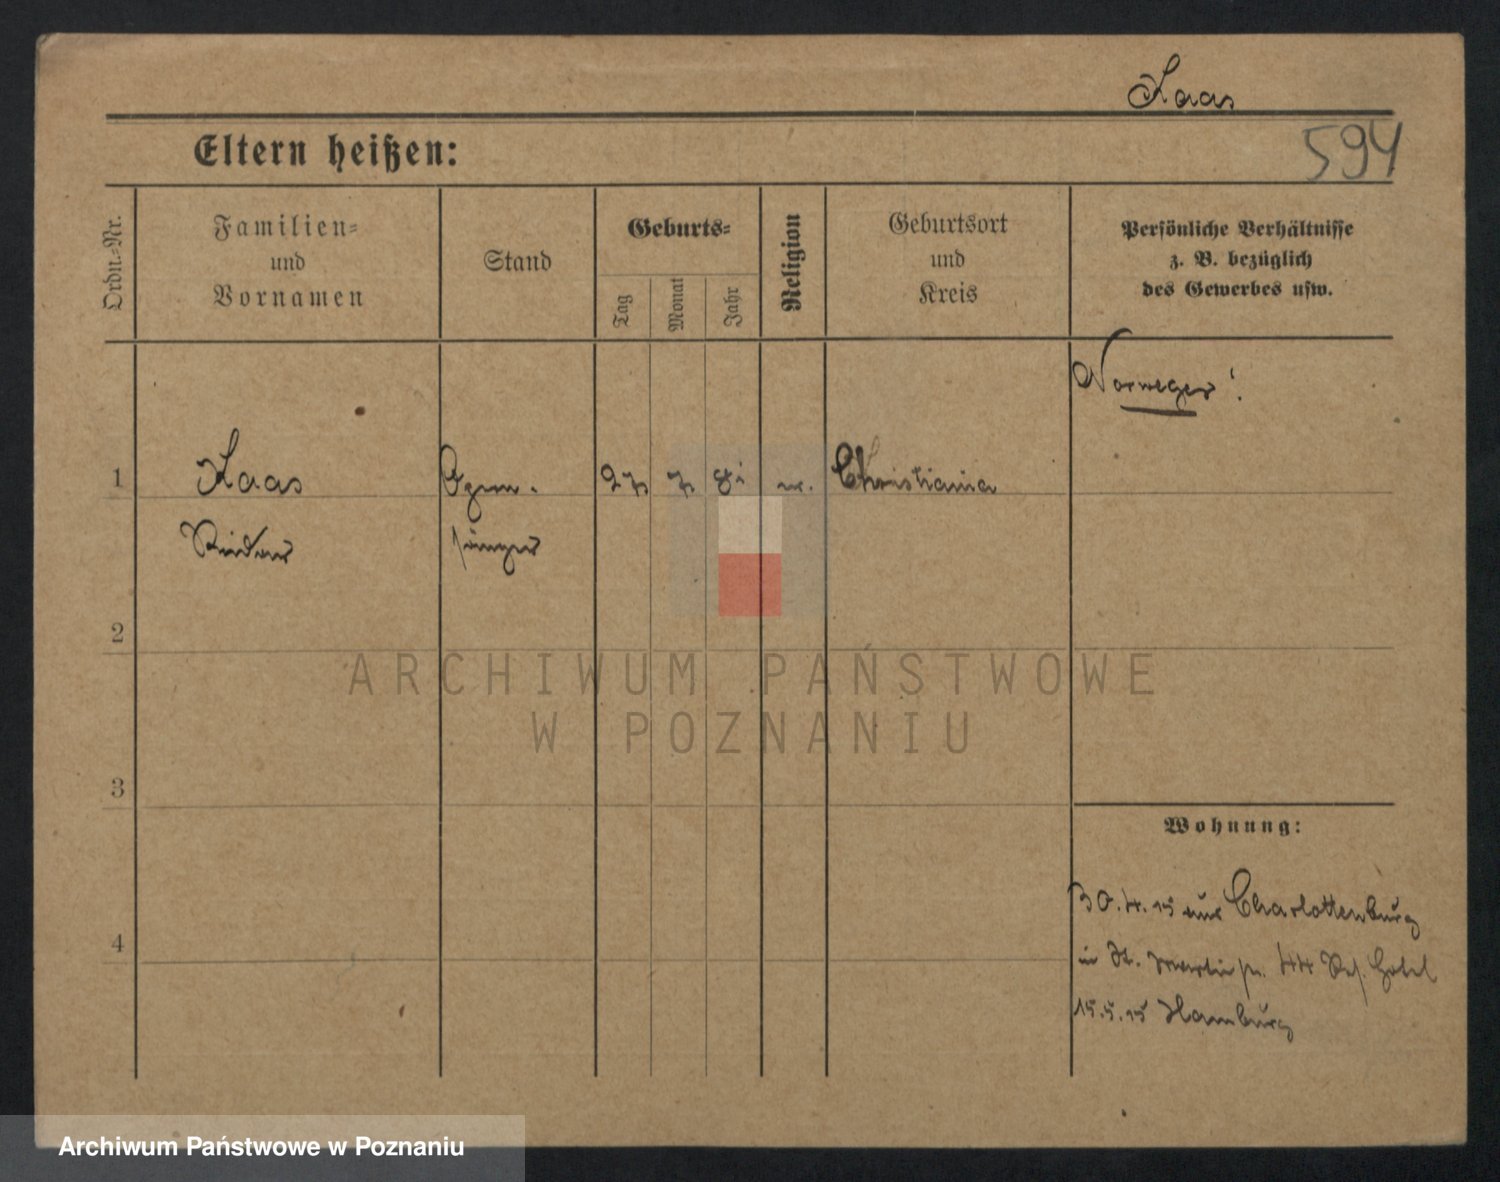 Kaas
594
Eltern heißen:
Ordn.-Nr.
Familien-
und
Vornamen
Stand
Geburts-
Tag
Monat
Jahr
Religion
Geburtsort
und
Kreis
Persönliche Verhältnisse
z. B. bezüglich
des Gewerbes usw.
Norweger!
1
Kaas
Opern-
sänger
27
7
81
Christiania
2
3
4
ARCHIWUM PAŃSTWOWE
W POZNANIU
Wohnung:
30.4.15 aus Charlottenburg
in St. Martinstr. 44 Hotel
15.5.15 Hamburg
Archiwum Państwowe w Poznaniu